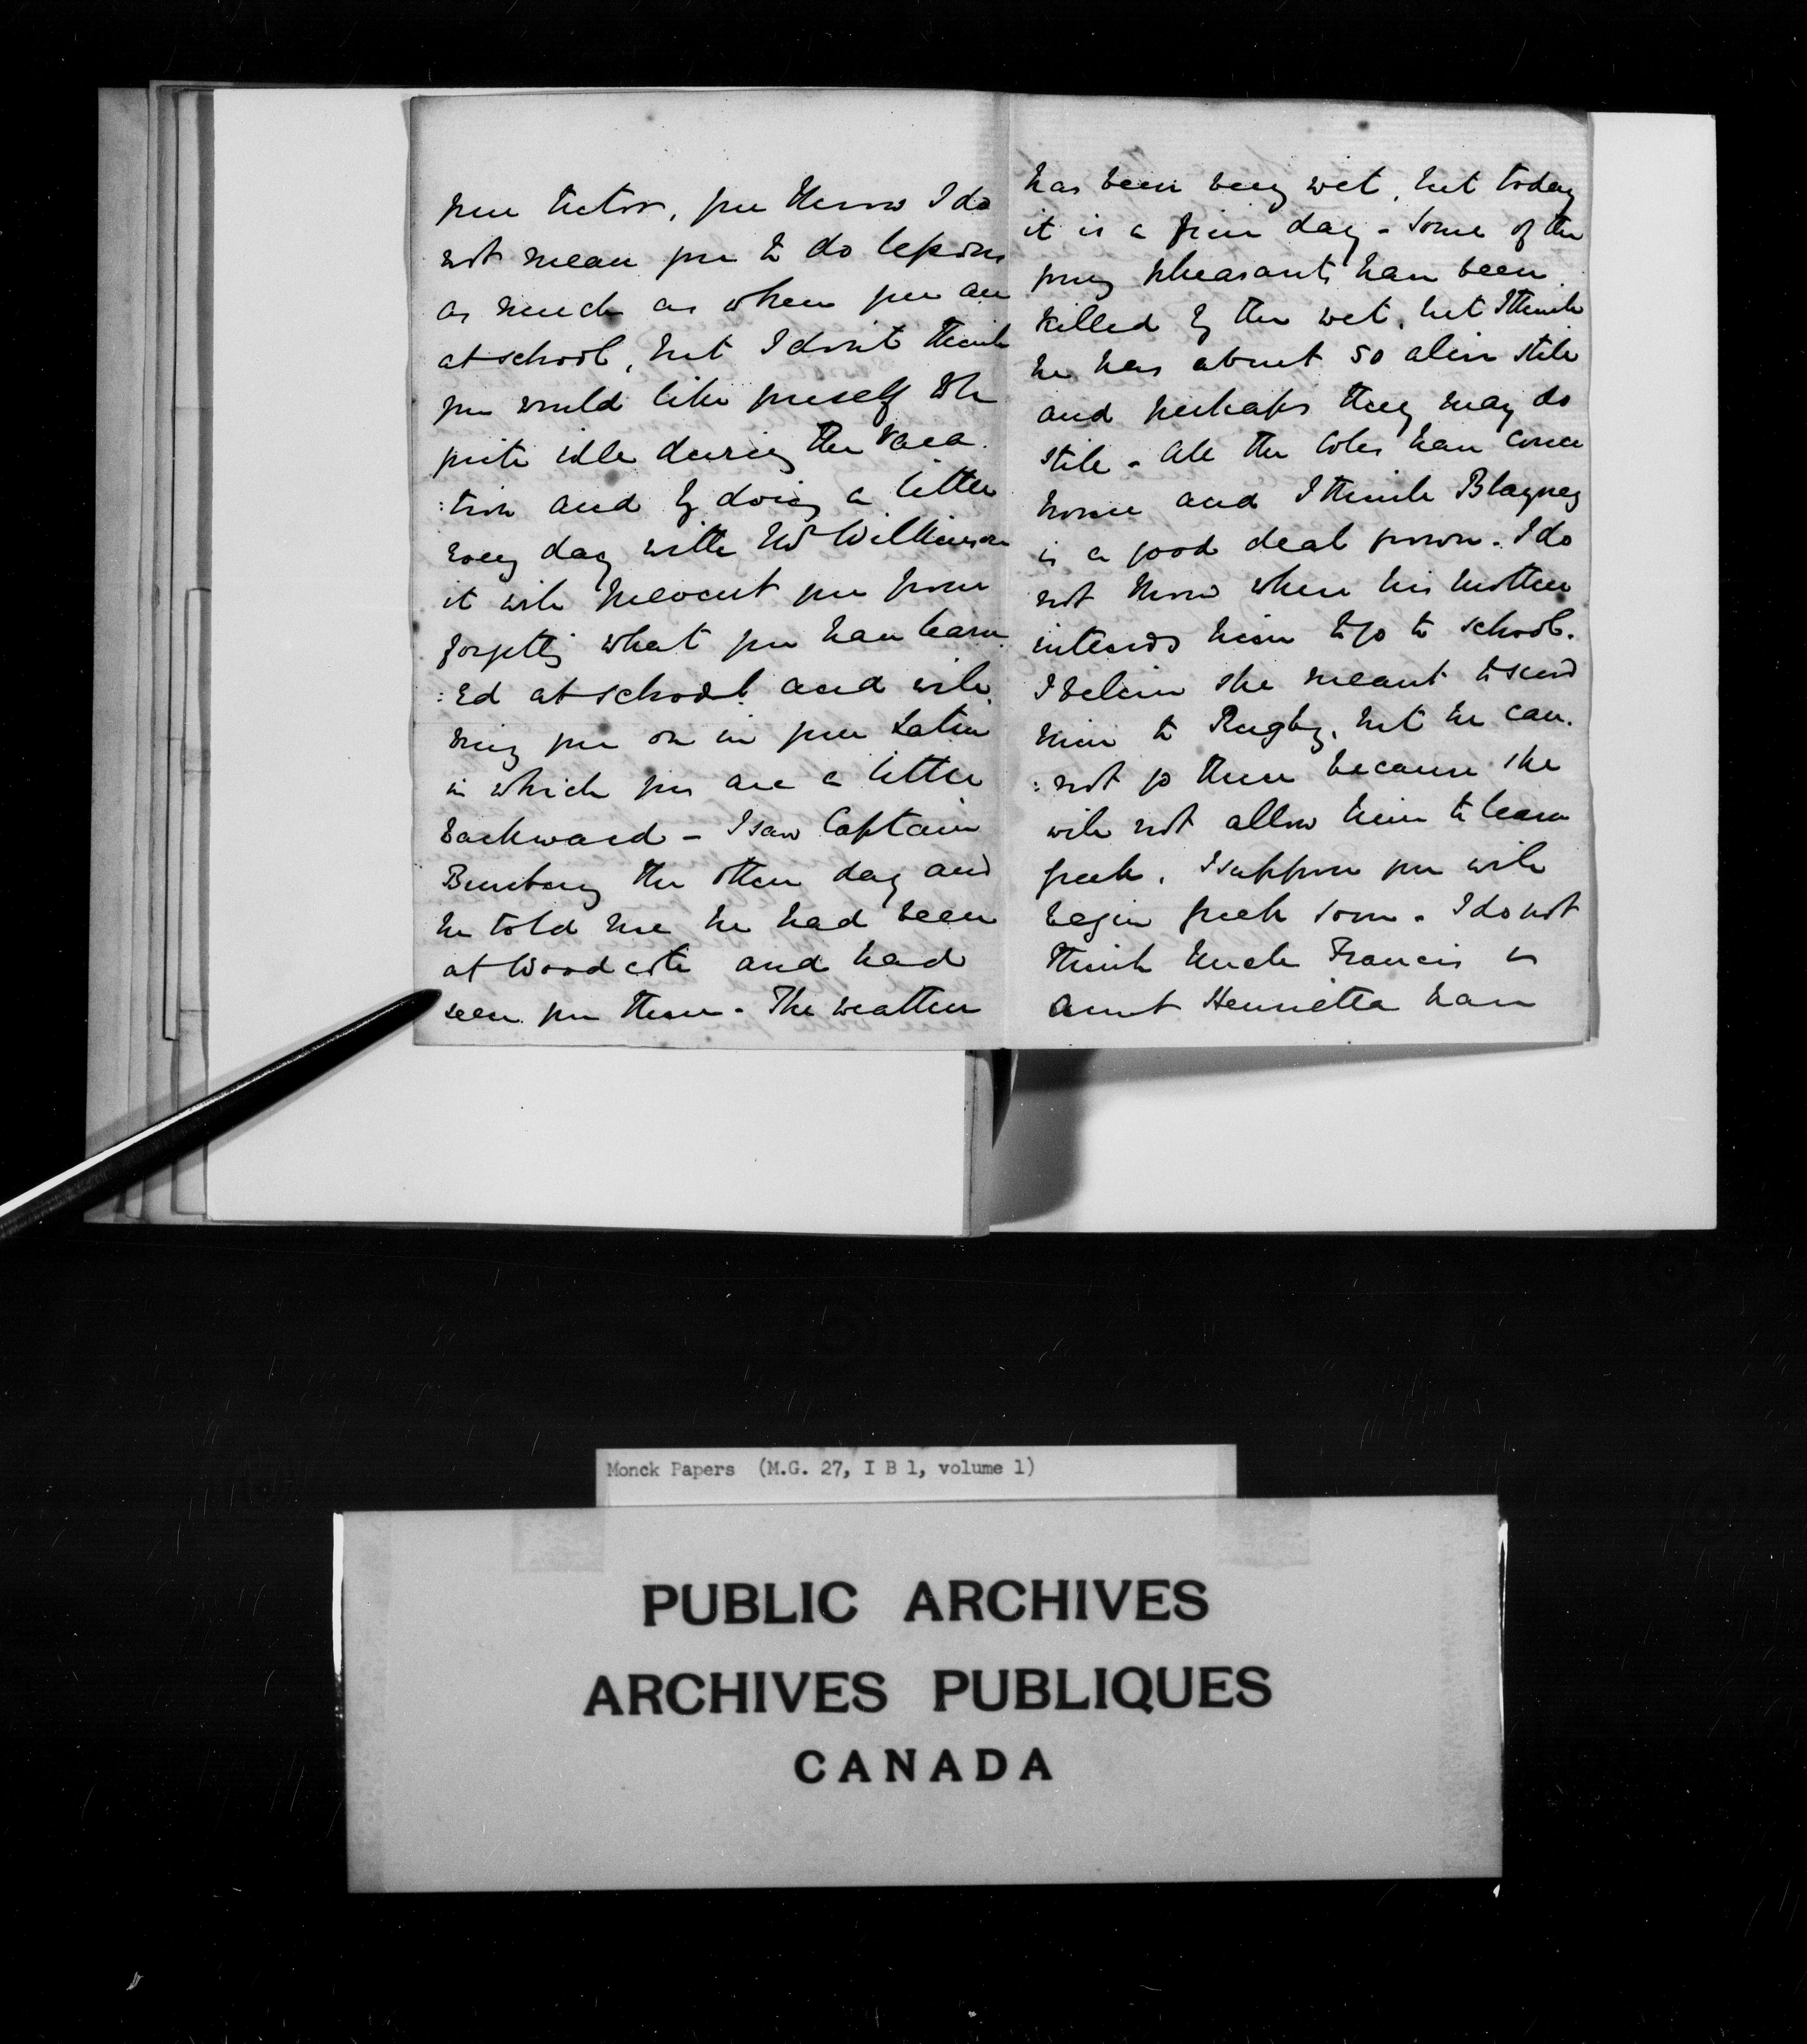 your tutor, you know I do
not mean you to do lessons
as much as when you are
at school, but I don't think
you would like yourself to be
quite idle during the vaca
:tion and by doing a little
every day with Mr Wilkinson
it will prevent you from
forgetting what you have learn
:ed at school and will
bring you on in your Latin
in which you are a little
backward – I saw Captain
Bunbury the other day and
he told me he had been
at Woodcote and had
seen you there. The weather
has been very wet, but today
it is a fine day – Some of the
young pheasants have been
killed by the wet, but I think
he has about 50 alive still
and perhaps they may do
still – All the Coles have come
home and I think Blayney
is a good deal grown. I do
not know where his mother
intends him to go to school.
I believe she meant to send
him to Rugby, but he can
:not go there because she
will not allow him to learn
greek. I suppose you will
begin greek soon. I do not
think Uncle Francis or
Aunt Henrietta have
Monck Papers (M.G. 27, I B 1, volume 1)
PUBLIC ARCHIVES
ARCHIVES PUBLIQUES
CANADA